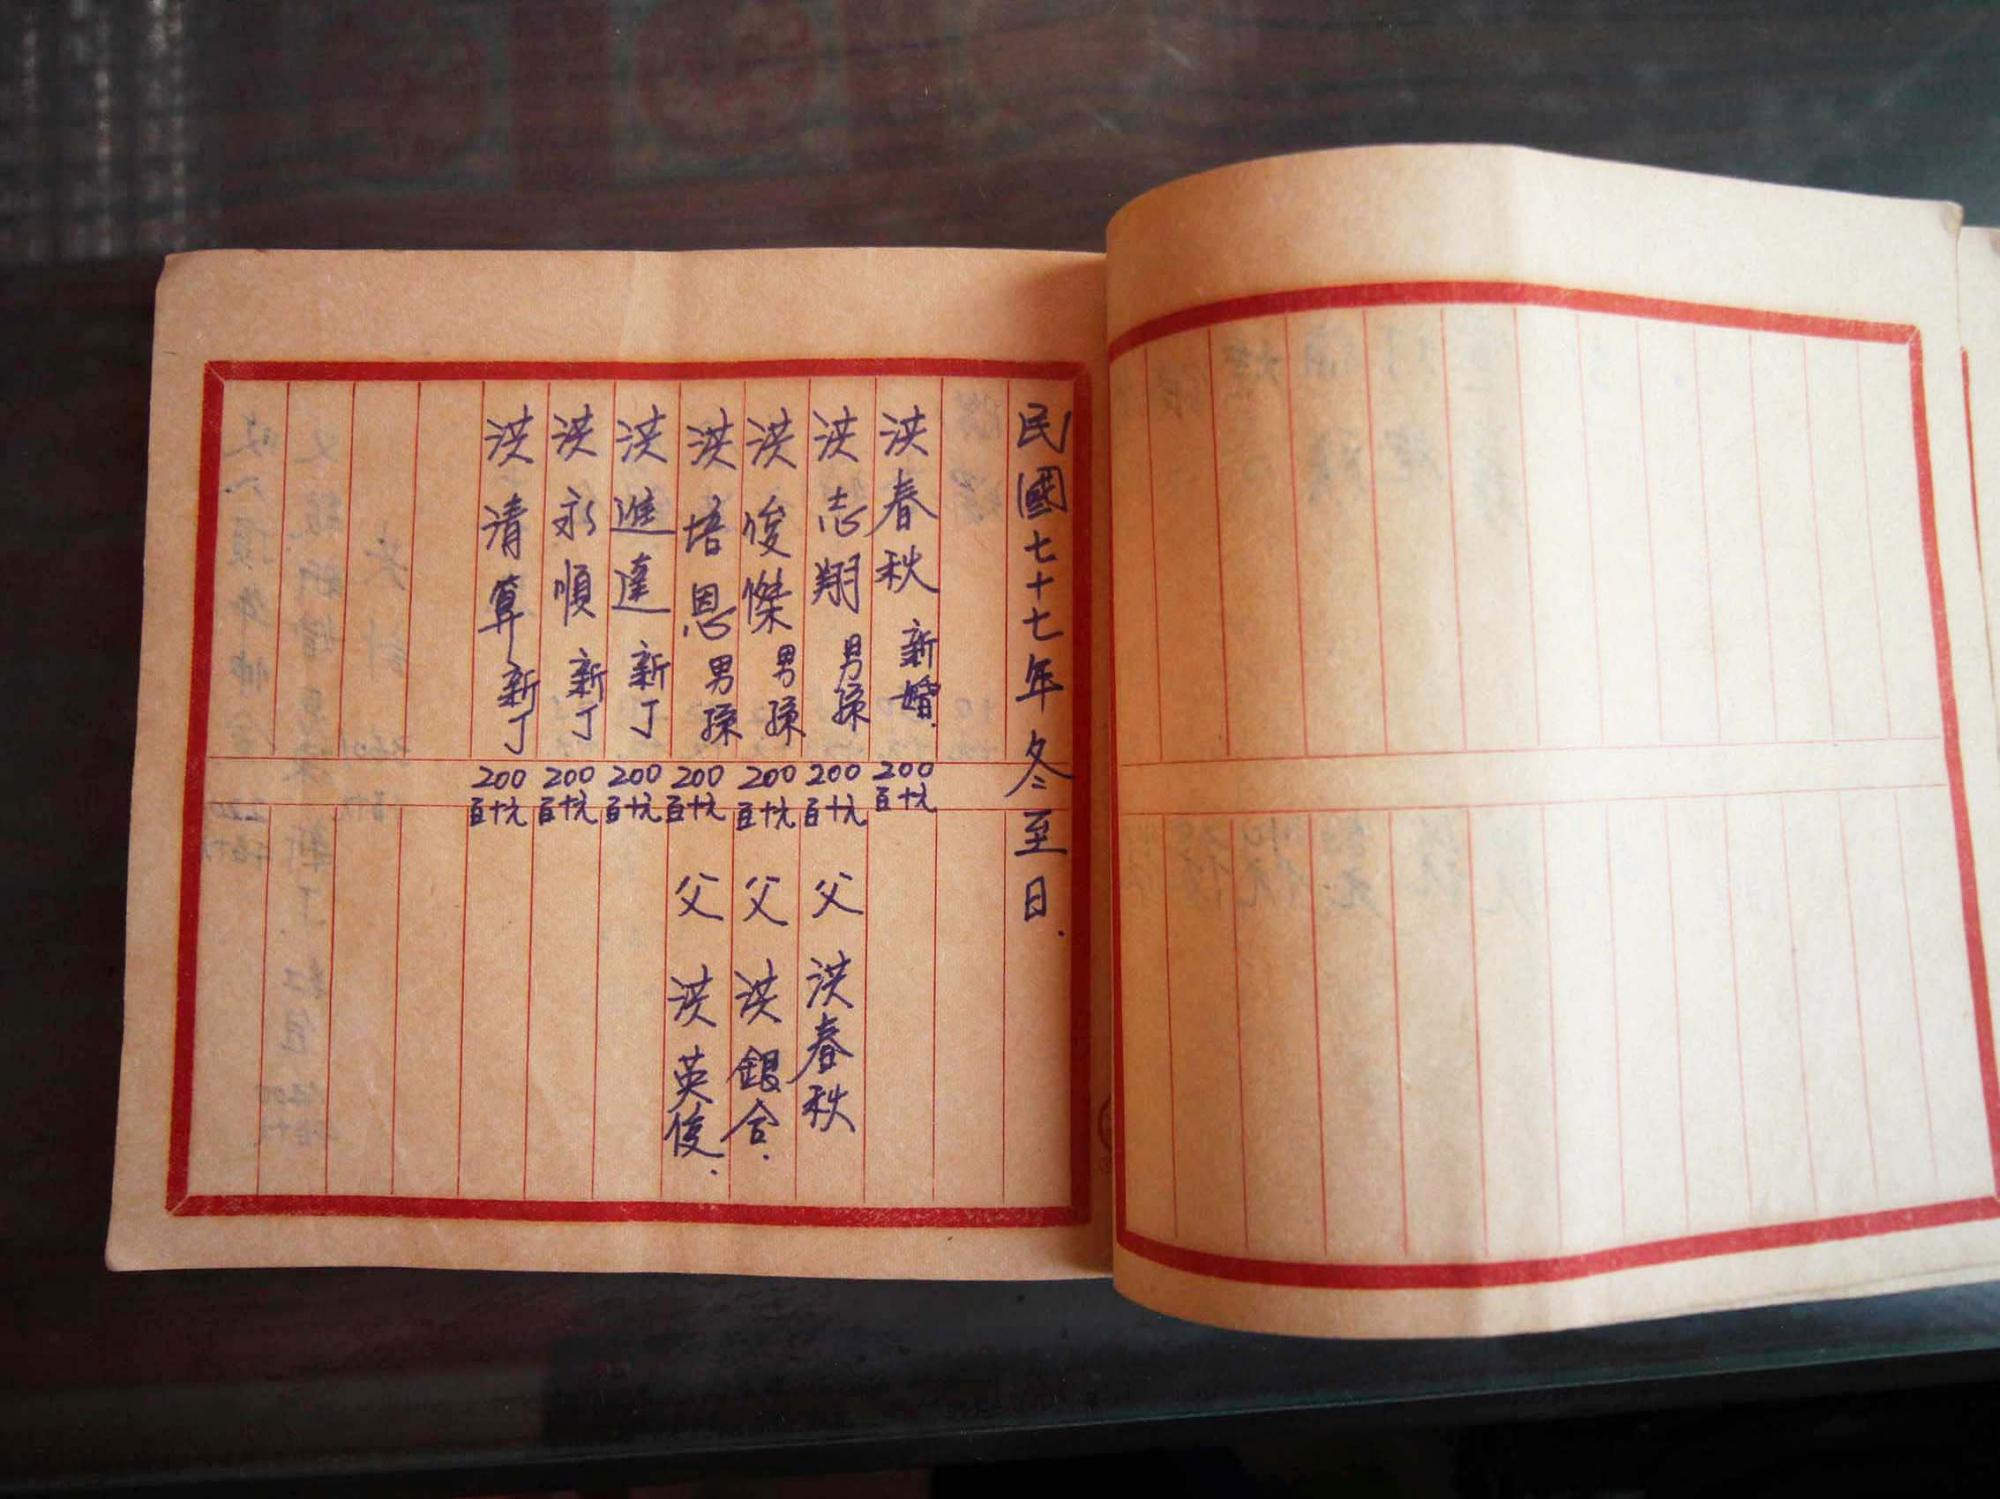 民國七十七年冬至日.
洪春秋 新婚. 200 百十元
洪志翔 男孫 200 百十元 父 洪春秋
洪俊傑 男孫 200 百十元 父 洪銀合.
洪培恩 男孫 200 百十元 父 洪英俊.
洪進達 新丁 200 百十元
洪永順 新丁 200 百十元
洪清算 新丁 200 百十元